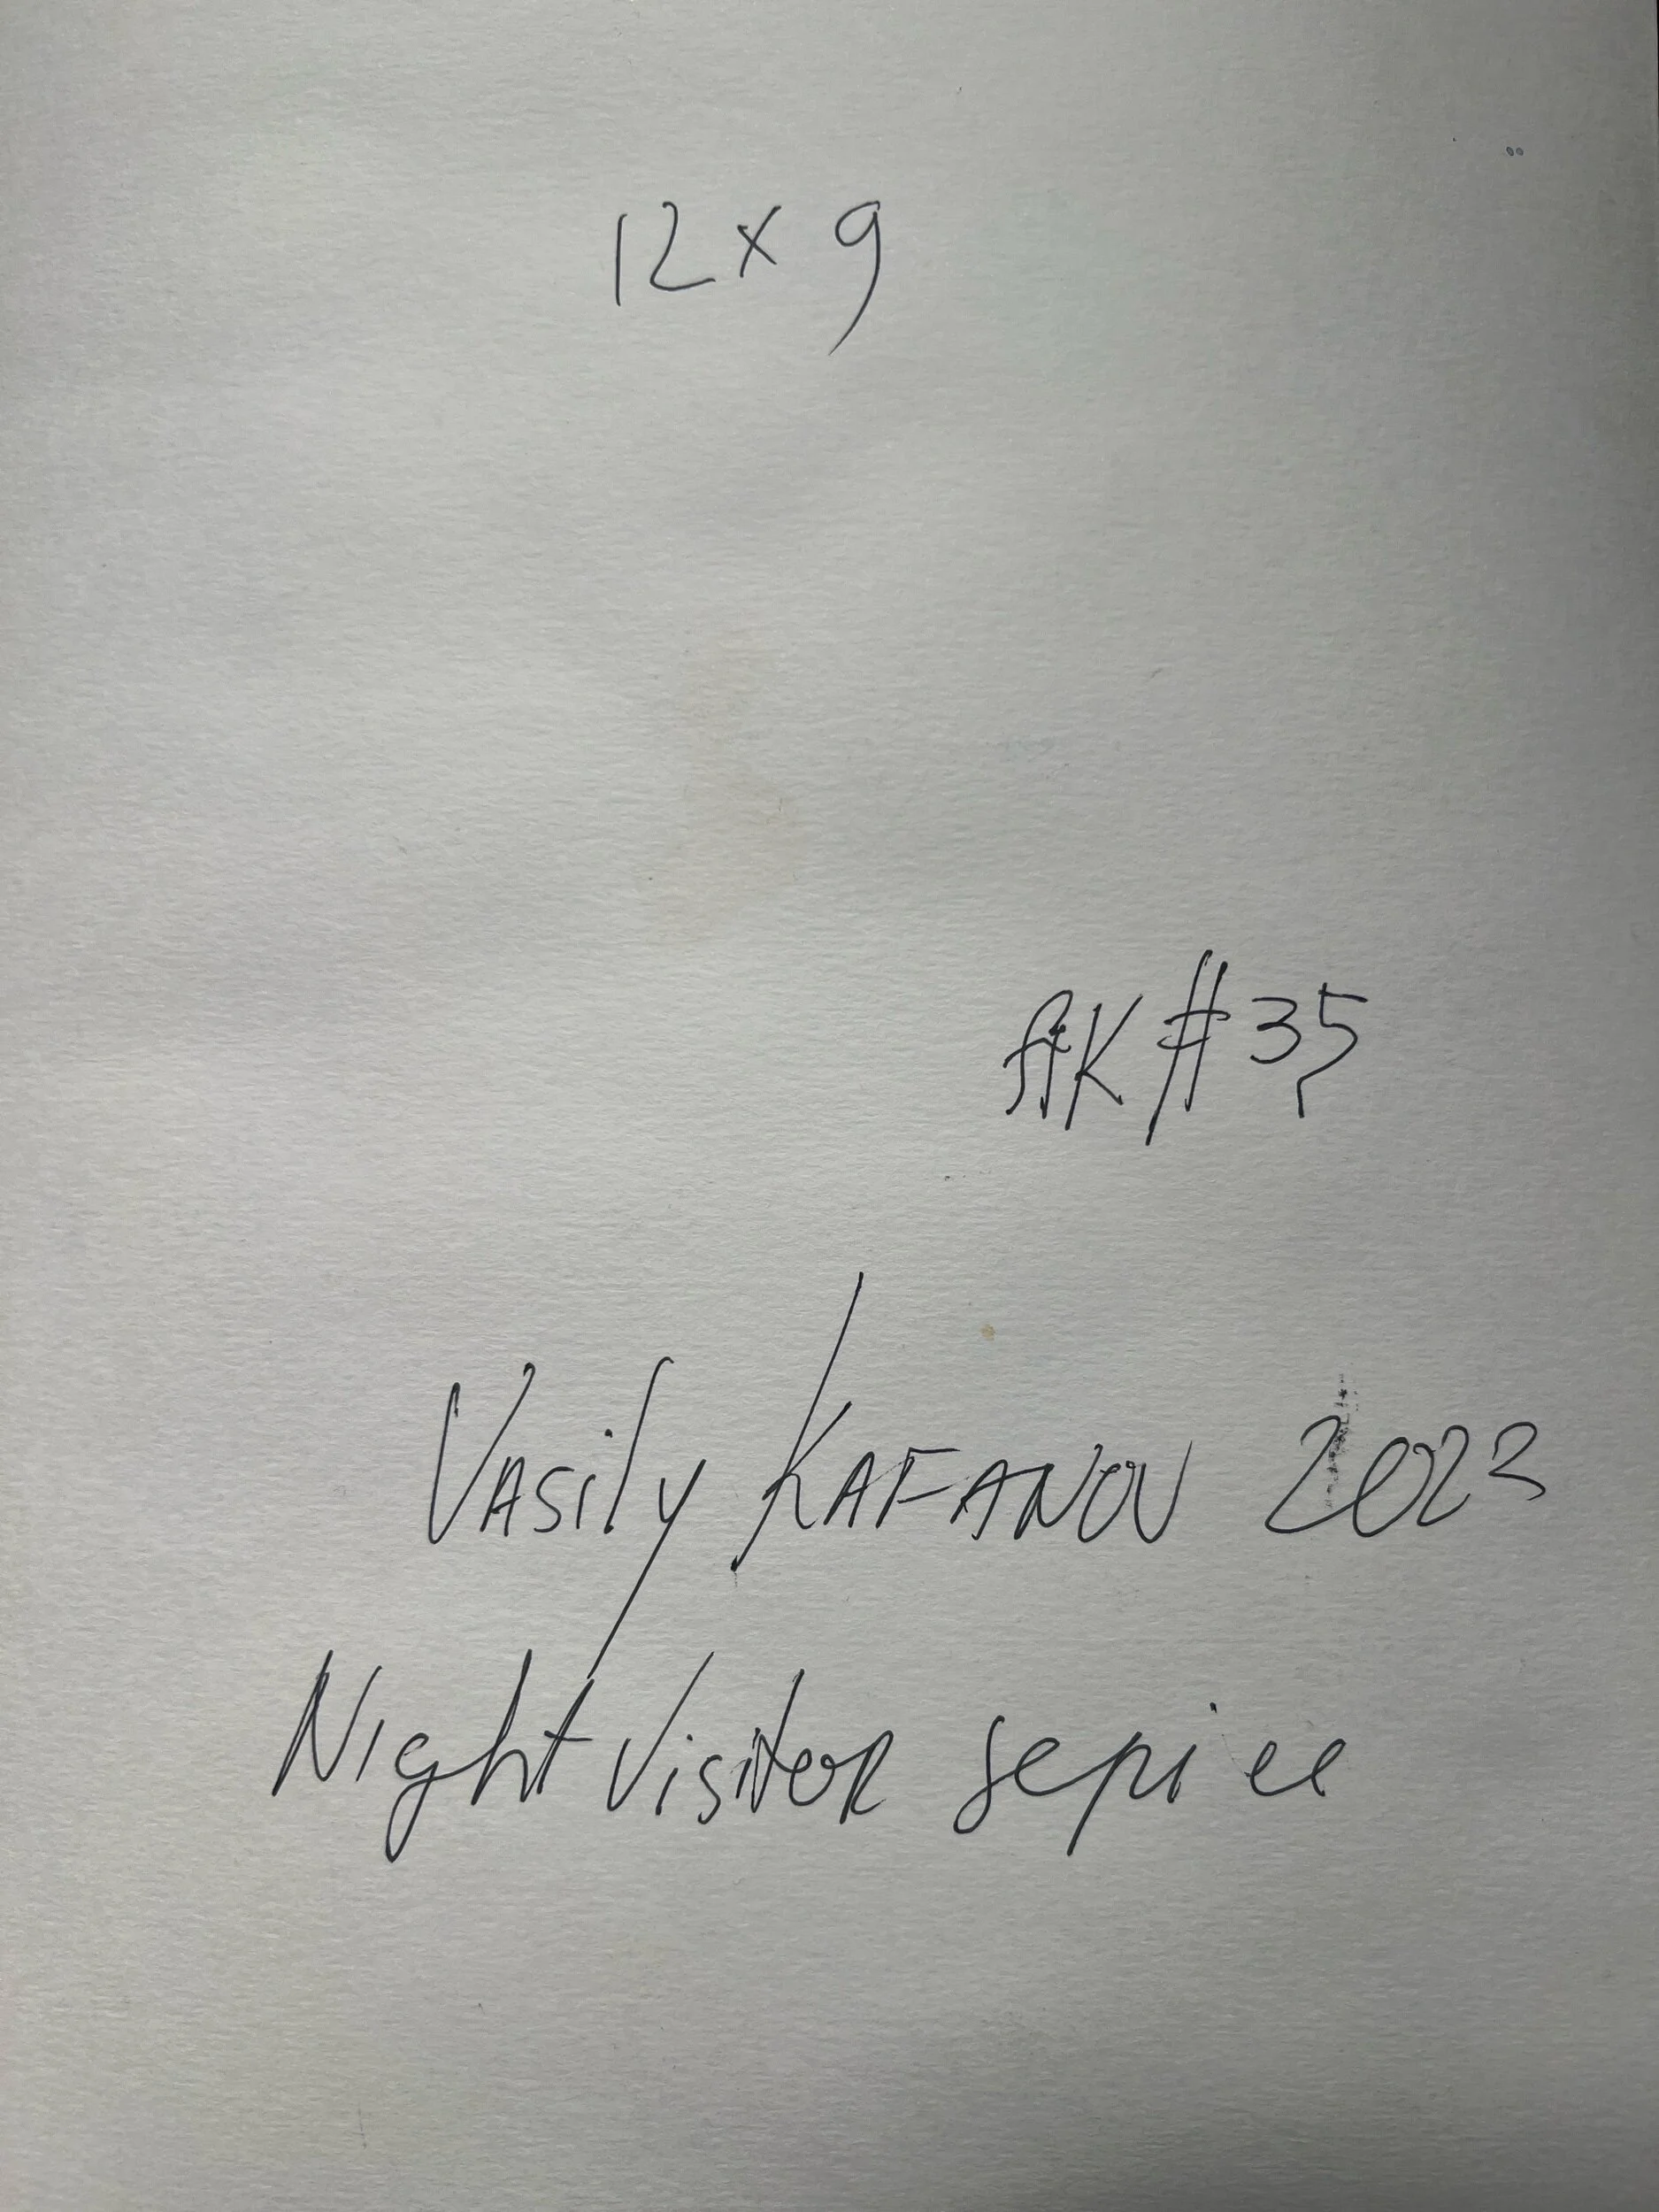 12 x 9
AK # 35
Vasily Kafanov 2023
Night Visitor